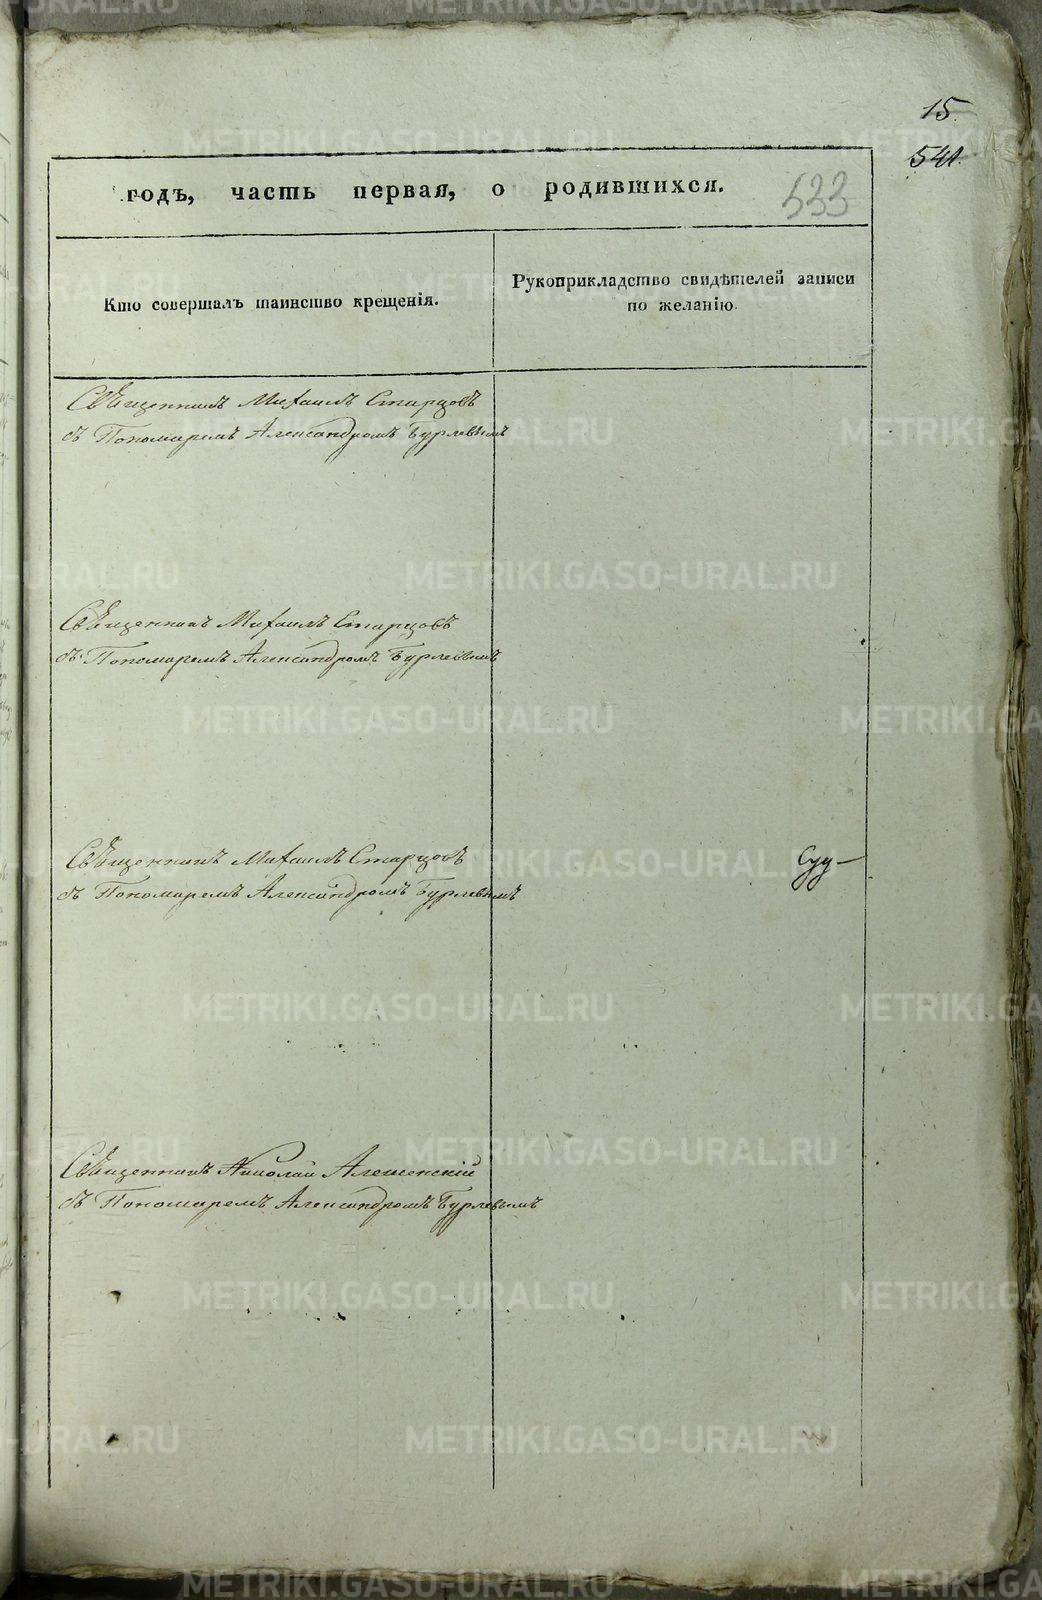 15.
541.
533
годъ, часть первая, о родившихся.
Кто совершалъ таинство крещенія.
Рукоприкладство свидѣтелей записи
по желанію.
Священникъ Михаилъ Старцовъ
съ Пономаремъ Александромъ Бурлевымъ
Священникъ Михаилъ Старцовъ
съ Пономаремъ Александромъ Бурлевымъ
Священникъ Михаилъ Старцовъ
съ Пономаремъ Александромъ Бурлевымъ
Суд—
Священникъ Николай
съ Пономаремъ Александромъ Бурлевымъ
METRIKI.GASO-URAL.RU